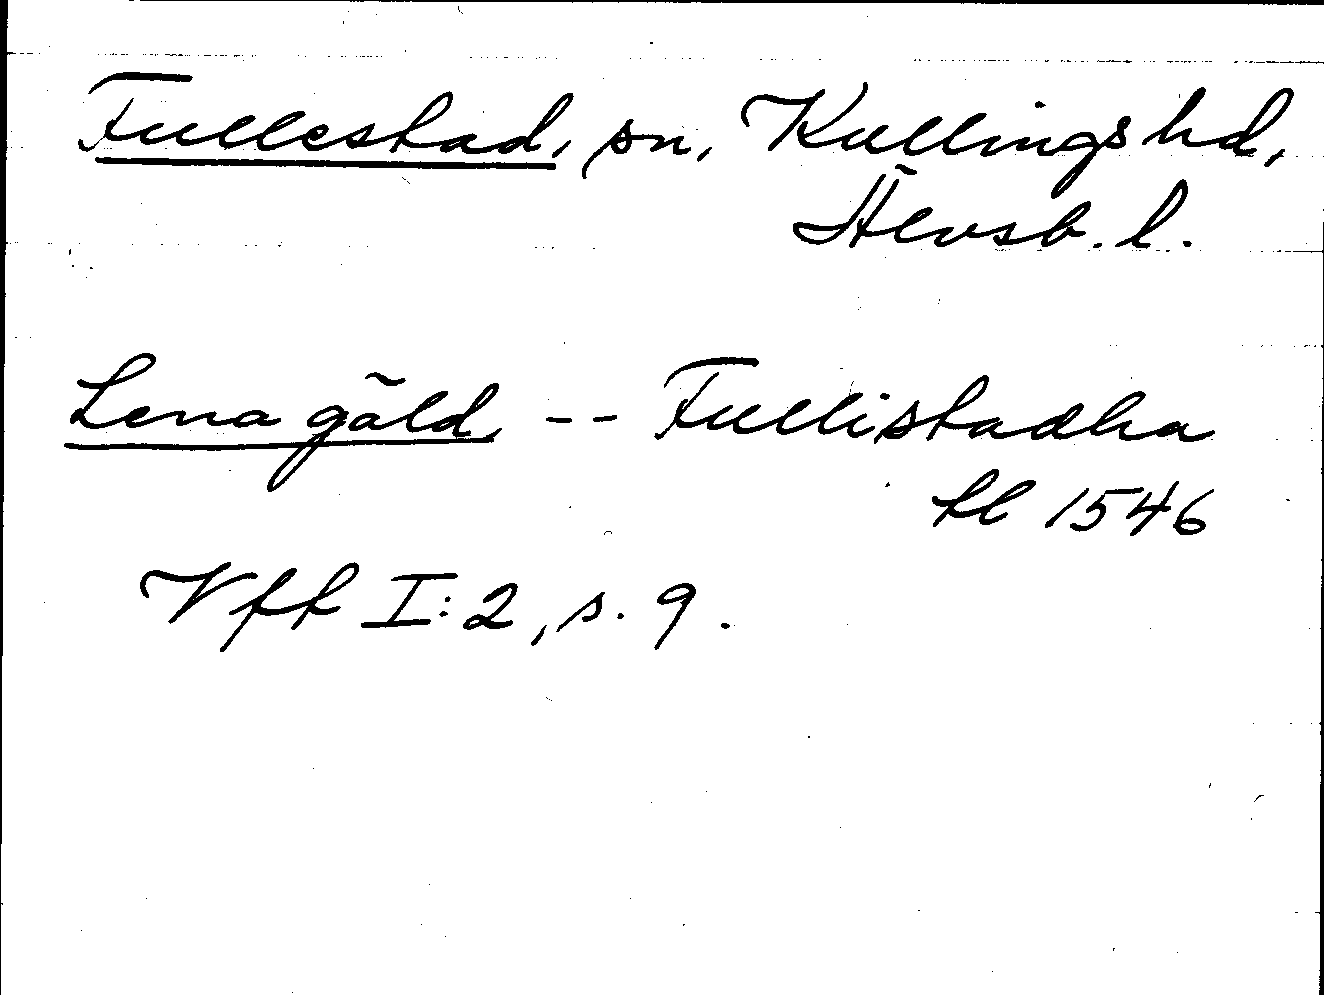 Fullestad, sn, Kullings hd,
Älvsb. l.
Lena gäld -- Fullistadha
tl 1546
Vff I:2, s. 9.